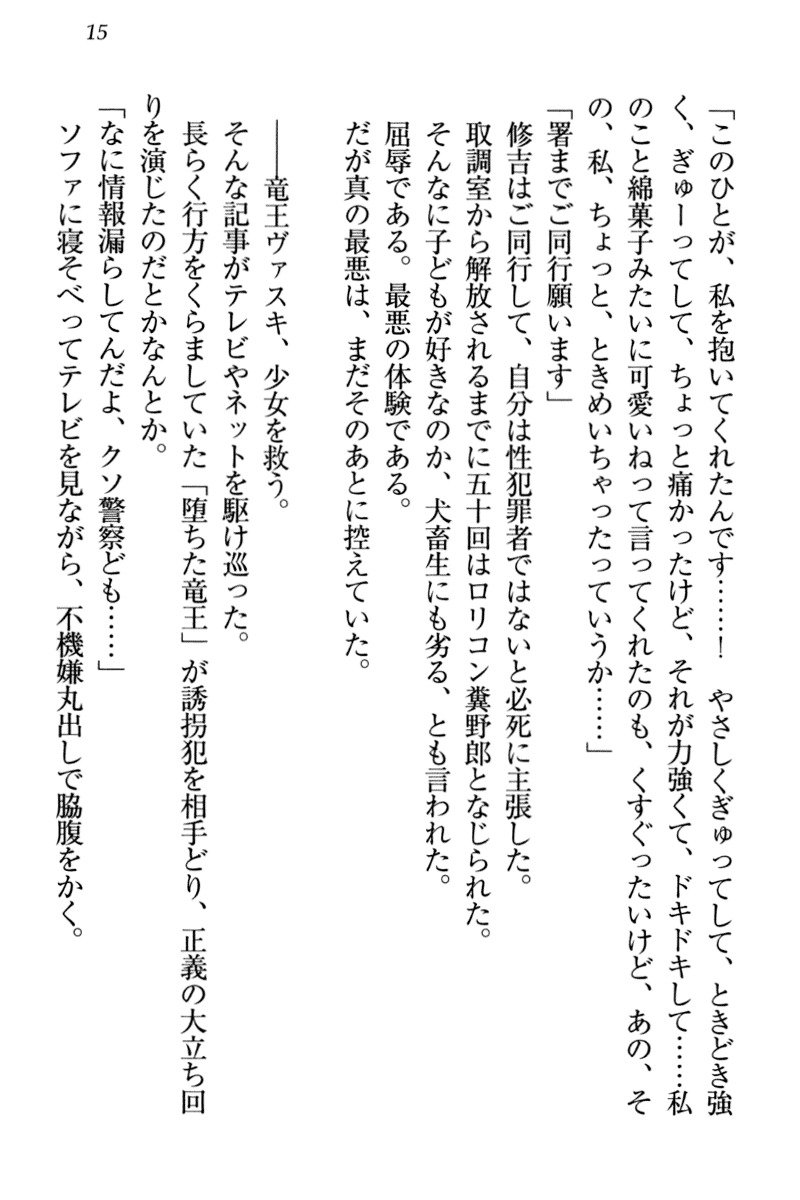 15
「このひとが、私を抱いてくれたんです……！　やさしくぎゅってして、ときどき強
く、ぎゅーってして、ちょっと痛かったけど、それが力強くて、ドキドキして……私
のこと綿菓子みたいに可愛いねって言ってくれたのも、くすぐったいけど、あの、そ
の、私、ちょっと、ときめいちゃったっていうか……」
「署までご同行願います」
修吉はご同行して、自分は性犯罪者ではないと必死に主張した。
取調室から解放されるまでに五十回はロリコン糞野郎となじられた。
そんなに子どもが好きなのか、犬畜生にも劣る、とも言われた。
屈辱である。最悪の体験である。
だが真の最悪は、まだそのあとに控えていた。
――竜王ヴァスキ、少女を救う。
そんな記事がテレビやネットを駆け巡った。
長らく行方をくらましていた「堕ちた竜王」が誘拐犯を相手どり、正義の大立ち回
りを演じたのだとかなんとか。
「なに情報漏らしてんだよ、クソ警察ども……」
ソファに寝そべってテレビを見ながら、不機嫌丸出しで脇腹をかく。